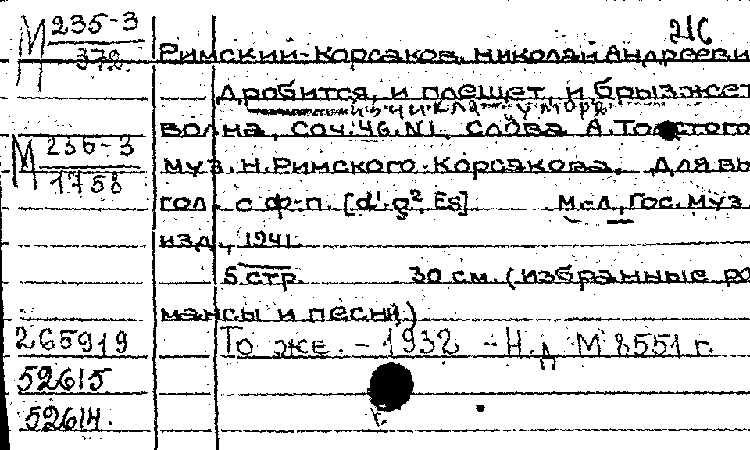 М 235-3
372.
216
Римский-Корсаков, Николай Андрееви
Дробится, и плещет, и брызжет
из цикла "У моря"
волна, Соч. 46. N1, Слова А. Толстого
М 236-3
1758
муз. Н. Римского-Корсакова. Для вы
гол. с ф-п. [d¹-g², Es] М.-Л., Гос. муз.
изд., 1941.
5 стр. 30 см. (Избранные ро
мансы и песни)
265919
То же. - 1932 - Н. М 8551 г.
52615
52614.